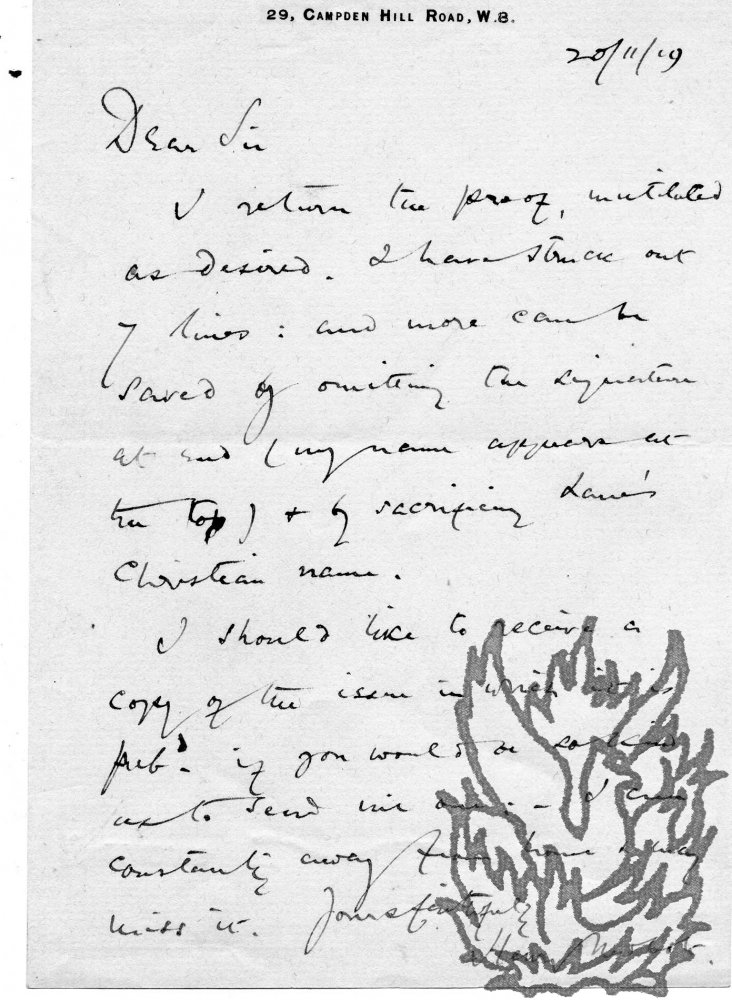 29, CAMPDEN HILL ROAD, W.8.
20/11/19
Dear Sir
I return the proof, mutilated
as desired. I have struck out
7 lines: and more can be
saved by omitting the signature
at end (my name appears at
the top) + by sacrificing Lane's
Christian name.
I should like to receive a
copy of the issue in which it is
pubd. if you would be so kind
as to send me one. – I am
constantly away from home & may
miss it. Yours faithfully
Henry